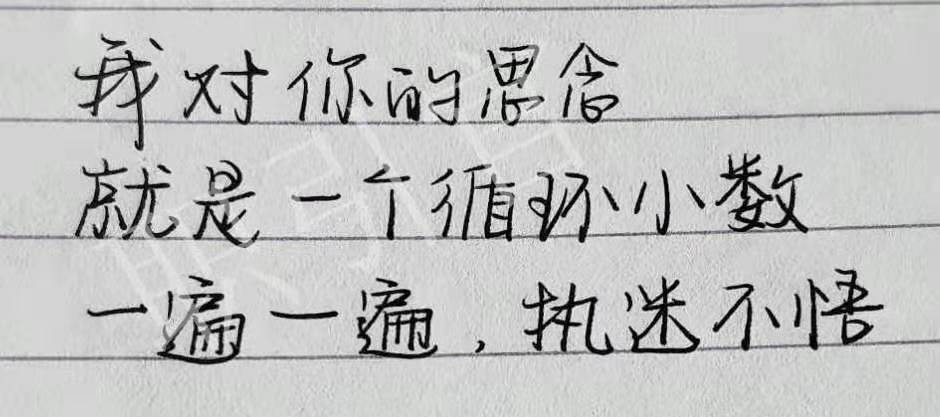 我对你的思念
就是一个循环小数
一遍一遍，执迷不悟